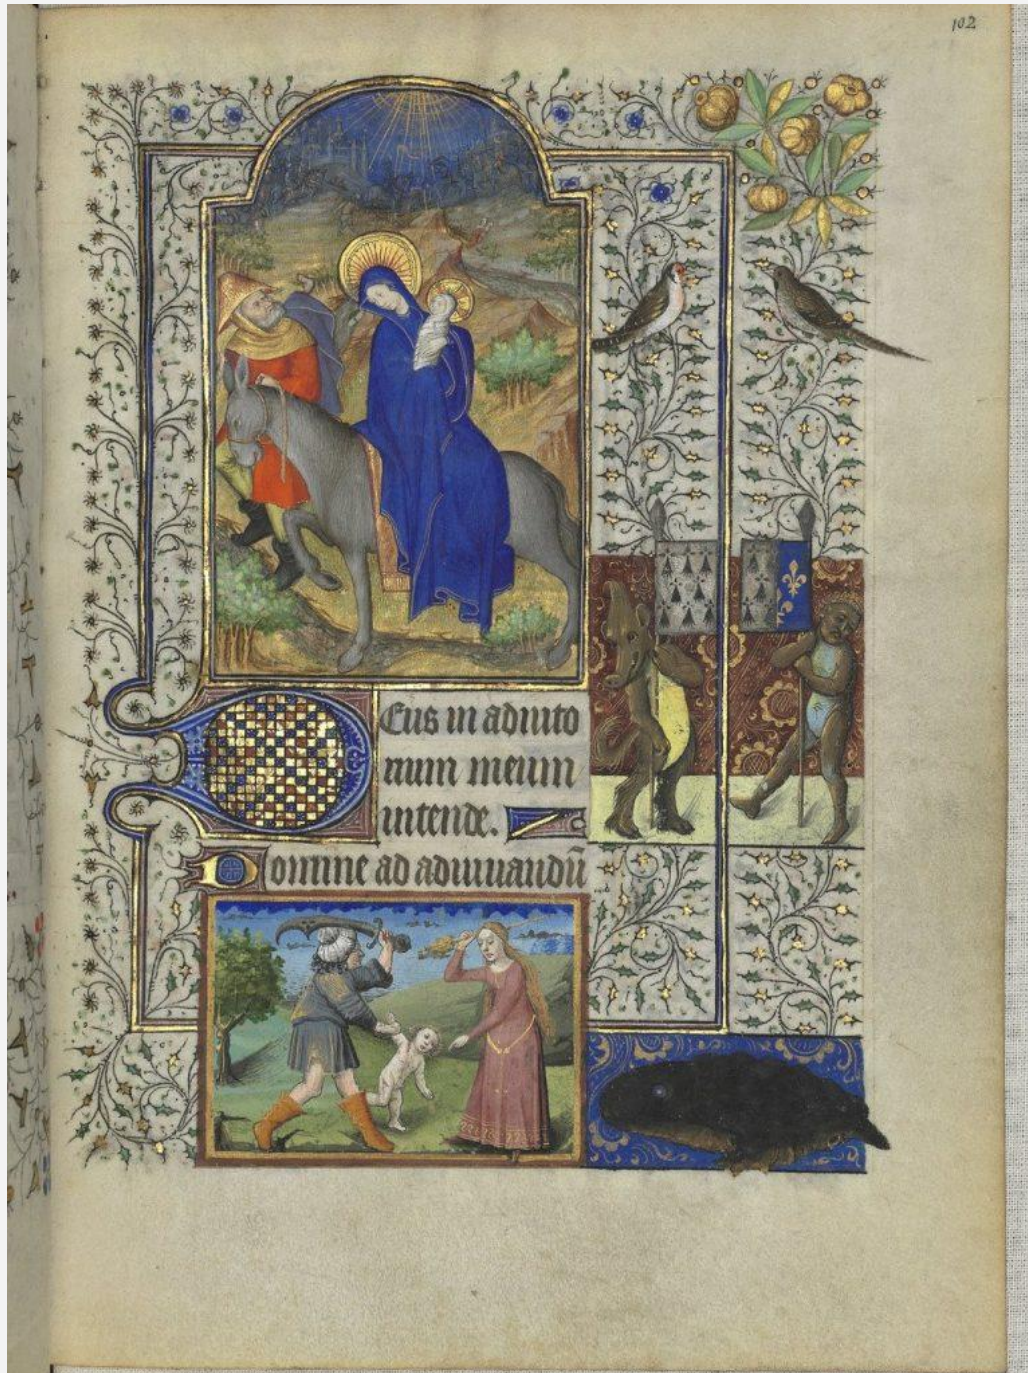 102
Eus in adiuto
rium meum
intende.
Domine ad adiuuandū